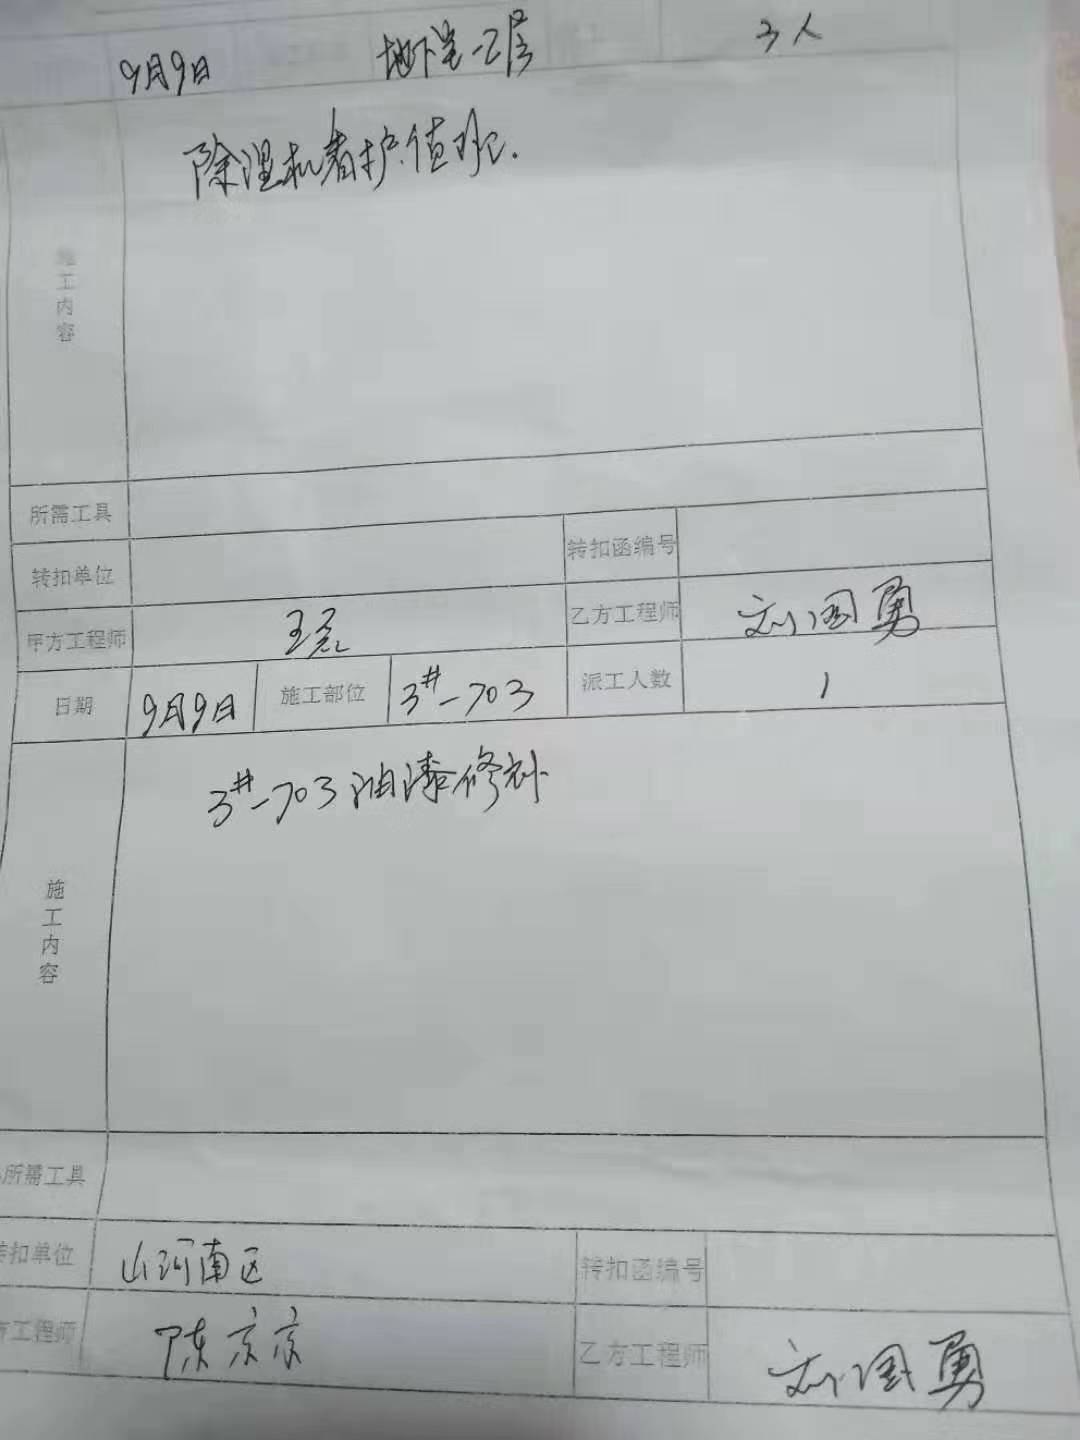 9月9日 地下室-2层 3人
除湿机看护.值班.
施工内容
所需工具
转扣单位 转扣函编号
甲方工程师 乙方工程师 刘国勇
日期 9月9日 施工部位 3#-703 派工人数 1
3#-703油漆修补
施工内容
所需工具
转扣单位 山河南区 转扣函编号
方工程师 陈京京 乙方工程师 刘国勇